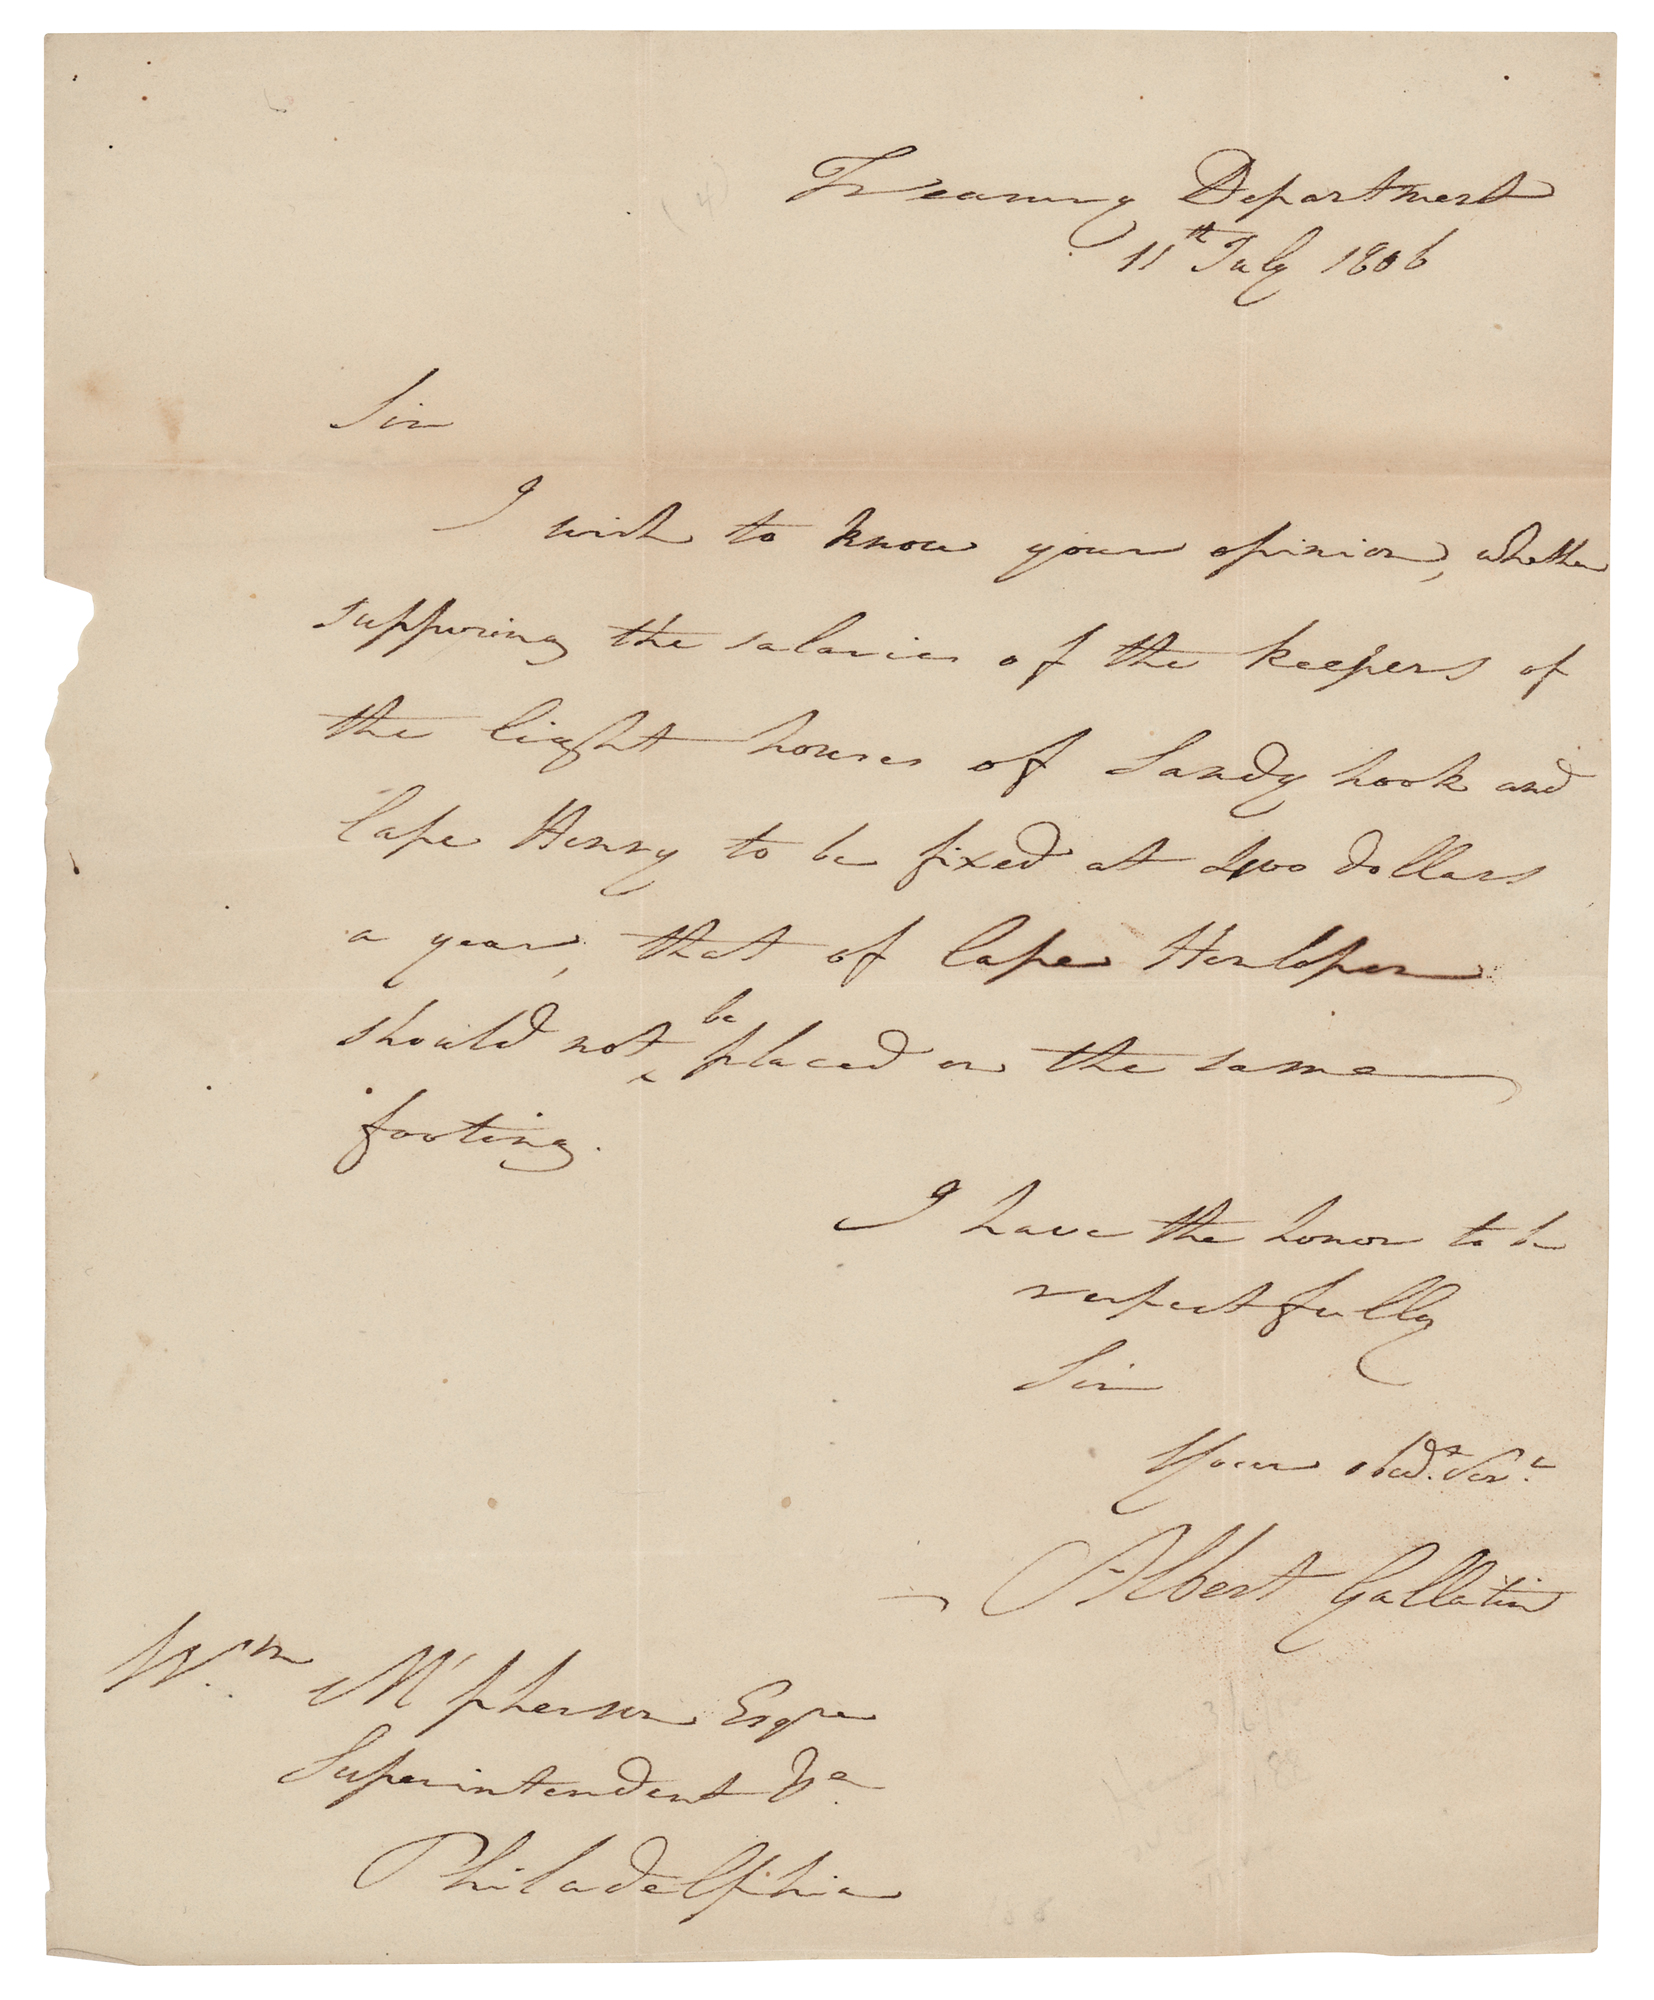 Treasury Department
11th July 1806
Sir
I wish to know your opinion, whether
supposing the salaries of the keepers of
the light houses of Sandy hook and
Cape Henry to be fixed at 400 dollars
a year, that of Cape Henlopen
should not be placed on the same
footing.
I have the honor to be
respectfully
Sir
Your obedt. Servt.
Albert Gallatin
Wm. McPherson Esqre
Superintendent &a.
Philadelphia